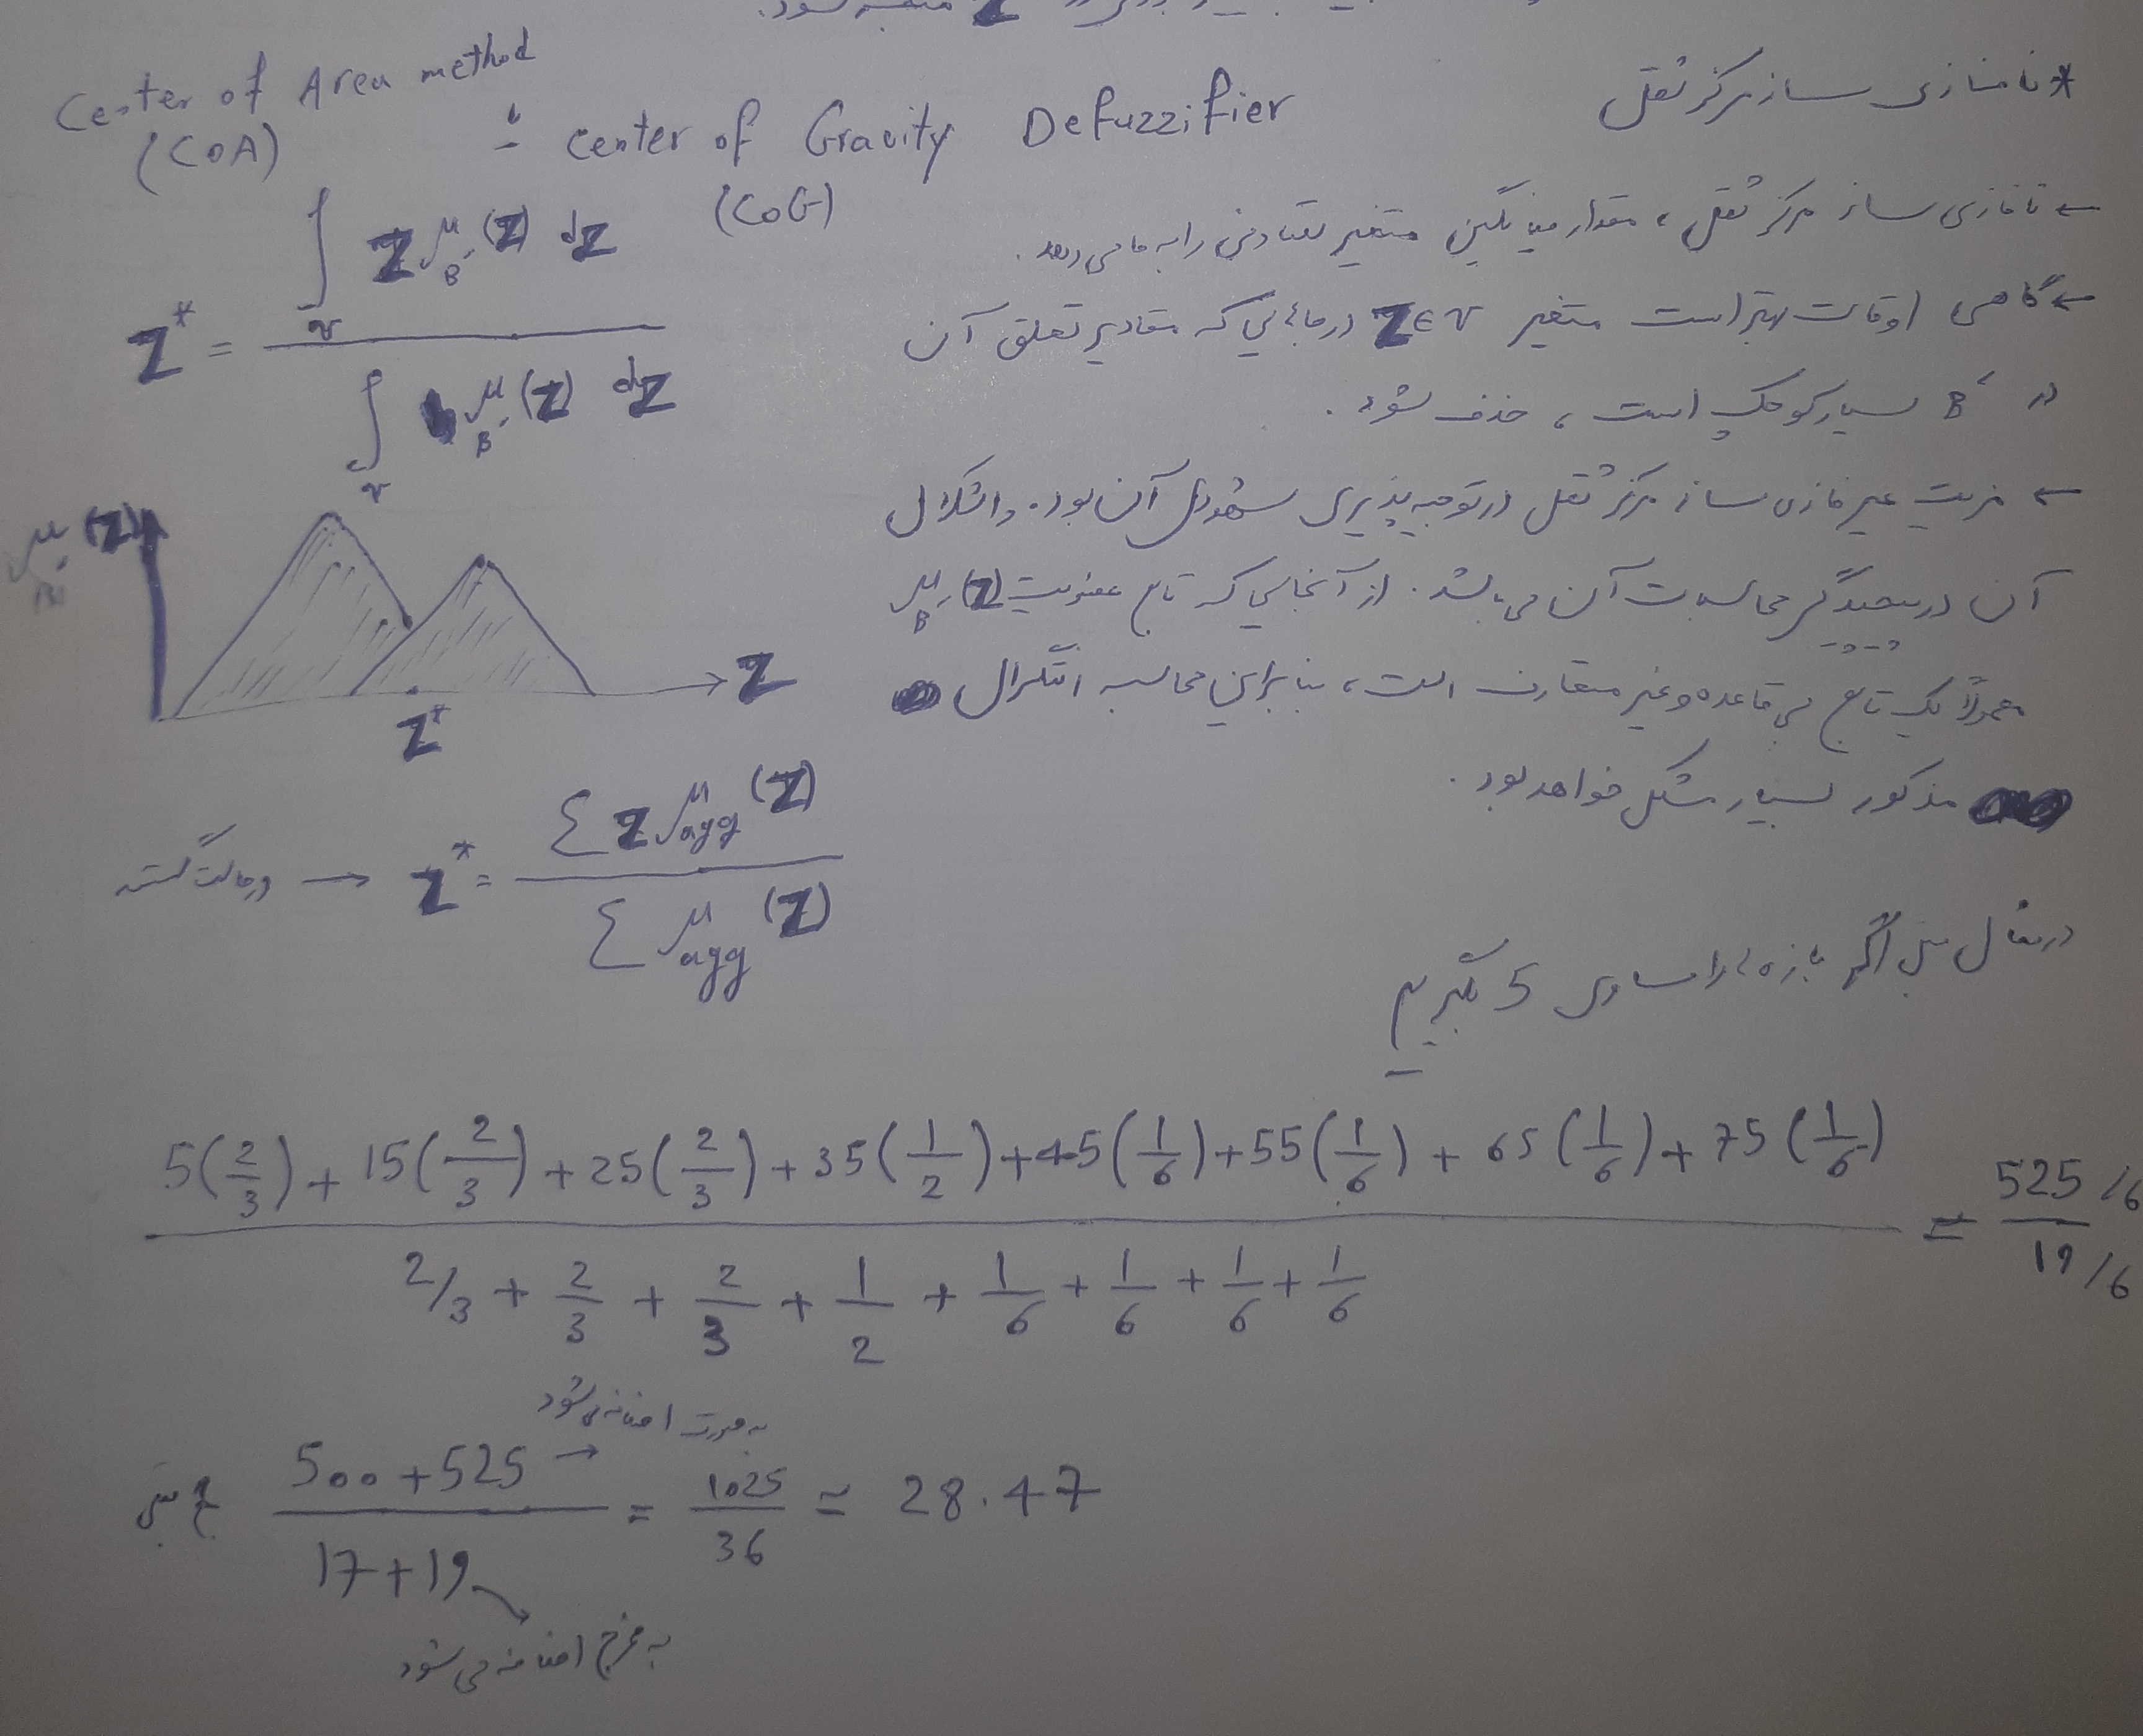 * نافازی ساز مرکز ثقل
Center of Area method
(COA)
یا center of Gravity Defuzzifier
(COG)
← نافازی ساز مرکز ثقل ، مقدار میانگین متغیر تصادفی را به ما می دهد .
← گاهی اوقات بهتر است متغیر Z∈V در جاهایی که مقادیر تعلق آن
در B′ بسیار کوچک است ، حذف شود .
← مزیت غیر فازی ساز مرکز ثقل در توجیه پذیری شهودی آن بوده و اشکال
آن در پیچیدگی محاسبات آن می باشد . از آنجایی که تابع عضویت μB′(Z)
معمولاً یک تابع بی قاعده و غیر متقارن است ، بنابراین محاسبه انتگرال
مذکور بسیار مشکل خواهد بود .
Z* = ∫v Z μB′(Z) dZ / ∫v μB′(Z) dZ
μB′(Z)
Z
Z*
در حالت گسسته → Z* = Σ Z μagg(Z) / Σ μagg(Z)
در مثال قبل اگر بازه ها را مساوی 5 بگیریم
5(2/3) + 15(2/3) + 25(2/3) + 35(1/2) + 45(1/6) + 55(1/6) + 65(1/6) + 75(1/6)
2/3 + 2/3 + 2/3 + 1/2 + 1/6 + 1/6 + 1/6 + 1/6
= 525/6 / 19/6
به صورت اضافه می شود
500 + 525 → / 17 + 19 = 1025/36 ≃ 28.47
به مخرج اضافه می شود